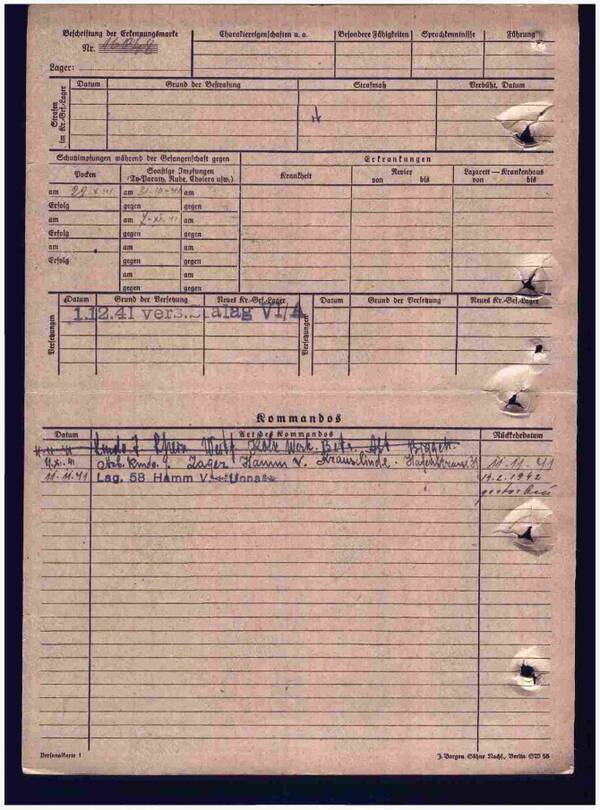 Beschriftung der Erkennungsmarke
Nr.
Lager:
Charaktereigenschaften u. a.
Besondere Fähigkeiten
Sprachkenntnisse
Führung
Strafen im Kr.-Gef.-Lager
Datum Grund der Bestrafung Strafmaß Verbüßt, Datum
Schutzimpfungen während der Gefangenschaft gegen
Erkrankungen
Pocken
Sonstige Impfungen
(Ty-Paraty, Ruhr, Cholera usw.)
Krankheit
Revier
von bis
Lazarett — Krankenhaus
von bis
am 22.X.41 am 31.10.41 am
Erfolg gegen gegen
am am 7.XI.41 am
Erfolg gegen gegen
am am am
Erfolg gegen gegen
am am
gegen gegen
Versetzungen
Datum Grund der Versetzung Neues Kr.-Gef.-Lager
1.12.41 vers. Stalag VI/A
Versetzungen
Datum Grund der Versetzung Neues Kr.-Gef.-Lager
Kommandos
Datum Art des Kommandos Rückkehrdatum
Lager Hamm 11.11.41
11.11.41 Lag. 58 Hamm Unna 14.2.1942
gestorben
Personalkarte 1
J. Bergen Söhne Nachf., Berlin SW 68